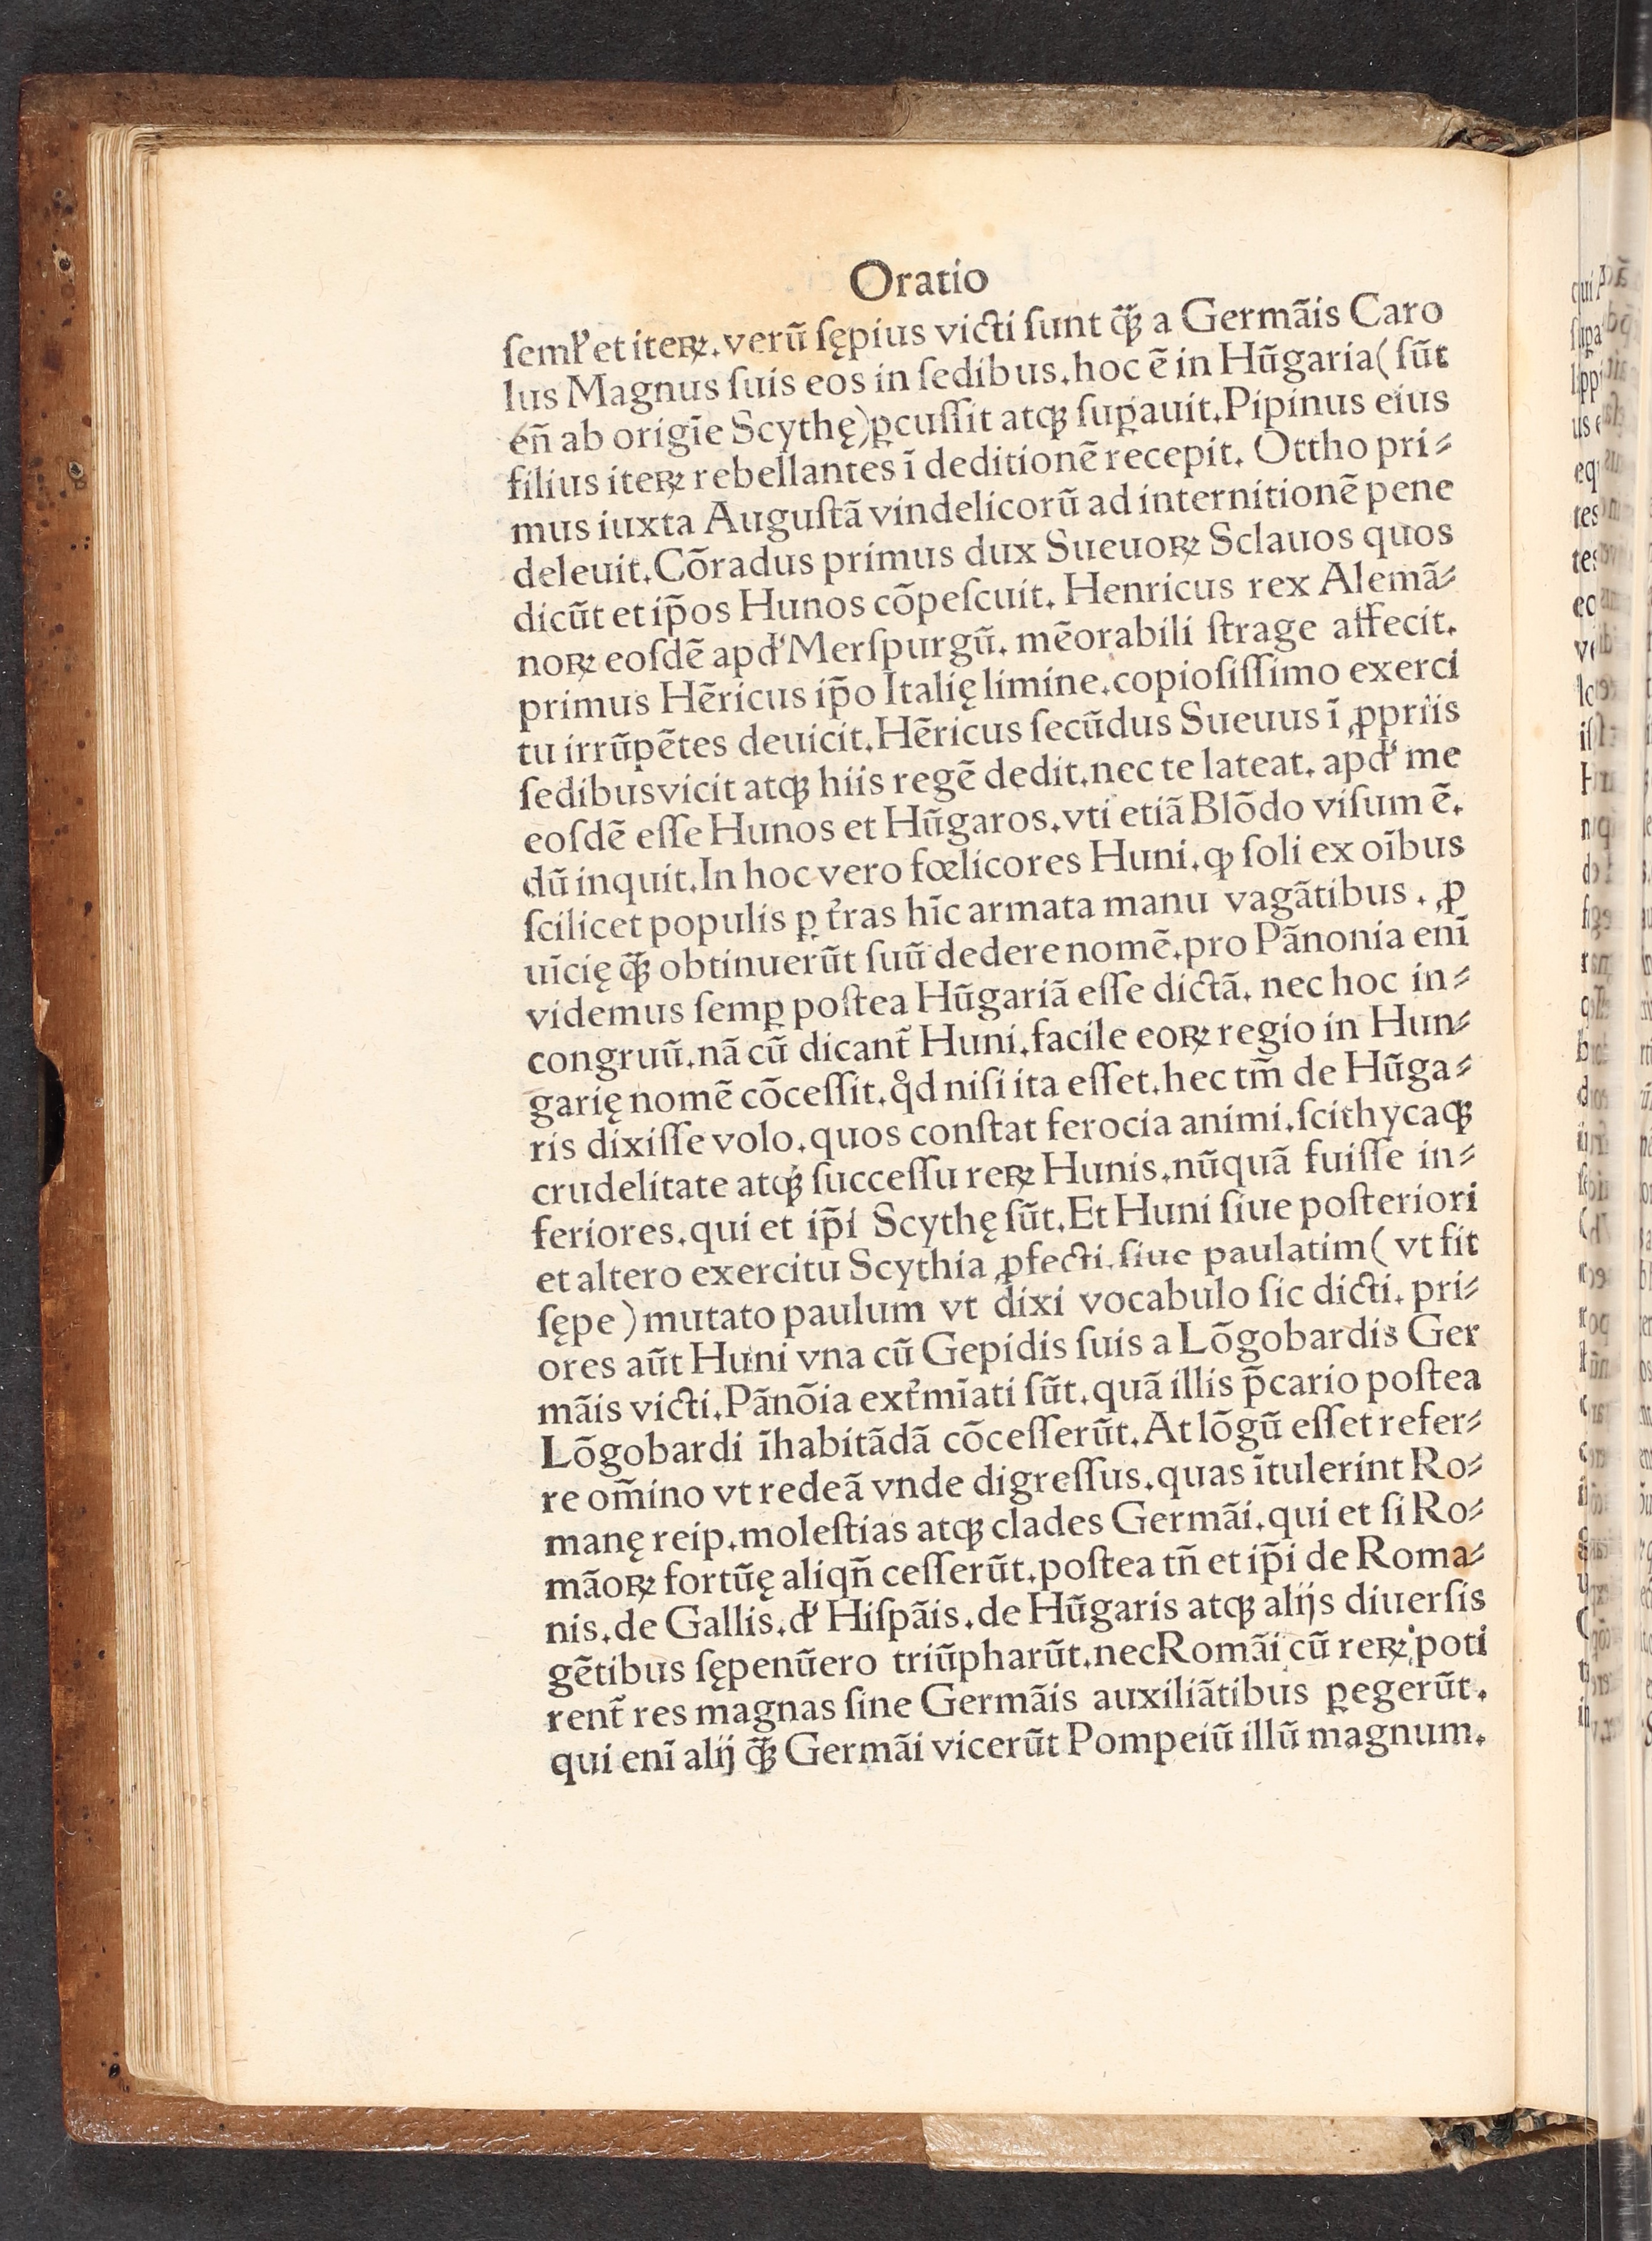 Oratio
ſemꝉ et iteꝝ. verũ ſępius victi ſunt q̃ꝫ a Germãis Caro
lus Magnus ſuis eos in ſedibus. hoc ē in Hũgaria( ſũt
eñ ab origīe Scythę)ꝑcuſſit atqꝫ ſuꝑauit. Pipinus eius
filius iteꝝ rebellantes ī deditionē recepit. Ottho pri⸗
mus iuxta Auguſtã vindelicorũ ad internitionē pene
deleuit. Cõradus primus dux Sueuoꝝ Sclauos quos
dicũt et ip̃os Hunos cõpeſcuit. Henricus rex Alemã⸗
noꝝ eoſdē apď Merſpurgũ. mēorabili ſtrage affecit.
primus Hēricus ip̃o Italię limine. copioſiſſimo exerci
tu irrũpētes deuicit. Hēricus ſecũdus Sueuus ī ꝓpriis
ſedibusvicit atqꝫ hiis regē dedit. nec te lateat. apď me
eoſdē eſſe Hunos et Hũgaros. vti etiã Blõdo viſum ē.
dũ inquit. In hoc vero fœlicores Huni. ꝙ ſoli ex oībus
ſcilicet populis ꝑ t̕ras hīc armata manu vagãtibus . ꝓ
uīcię q̃ꝫ obtinuerũt ſuũ dedere nomē. pro Pãnonia enī
videmus ſemꝑ poſtea Hũgariã eſſe dictã. nec hoc in⸗
congruũ. nã cũ dicant̃ Huni. facile eoꝝ regio in Hun⸗
garię nomē cõceſſit. qͦd niſi ita eſſet. hec tm̃ de Hũga⸗
ris dixiſſe volo. quos conſtat ferocia animi. ſcithycaqꝫ
crudelitate atqꝫ ſucceſſu reꝝ Hunis. nũquã fuiſſe in⸗
feriores. qui et ip̃i Scythę ſũt. Et Huni ſiue poſteriori
et altero exercitu Scythia ꝓfecti. ſiue paulatim( vt fit
ſępe ) mutato paulum vt dixi vocabulo ſic dicti. pri⸗
ores aũt Huni vna cũ Gepidis ſuis a Lõgobardis Ger
mãis victi. Pãnõia ext̕mīati ſũt. quã illis p̃cario poſtea
Lõgobardi īhabitãdã cõceſſerũt. At lõgũ eſſet refer⸗
re om̃ino vt redeã vnde digreſſus. quas ītulerint Ro⸗
manę reip. moleſtias atqꝫ clades Germãi. qui et ſi Ro⸗
mãoꝝ fortũę aliqñ ceſſerũt. poſtea tñ et ip̃i de Roma⸗
nis. de Gallis. ď Hiſpãis. de Hũgaris atqꝫ alijs diuerſis
gētibus ſępenũero triũpharũt. necRomãi cũ reꝝ poti
rent̃ res magnas ſine Germãis auxiliãtibus ꝑegerũt.
qui enī alij q̃ꝫ Germãi vicerũt Pompeiũ illũ magnum.